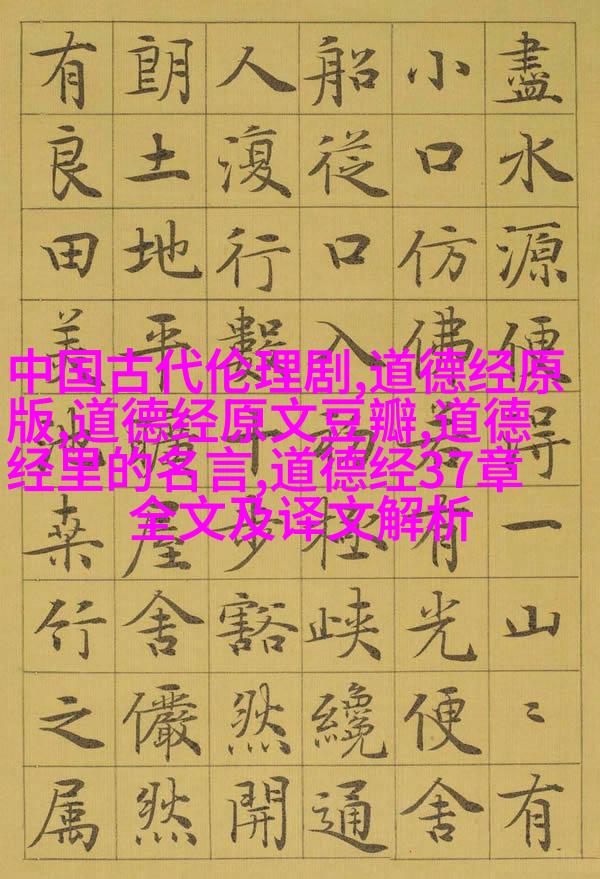 盡水源便得一山〻有
小口仿佛若有光便舍
船從口入初極峽纔通
人復行數十步豁然開
朗土地平曠屋舍儼然
有良田美池桑竹之属
中国古代伦理剧,道德经原
版,道德经原文豆瓣,道德
经里的名言,道德经37章
全文及译文解析